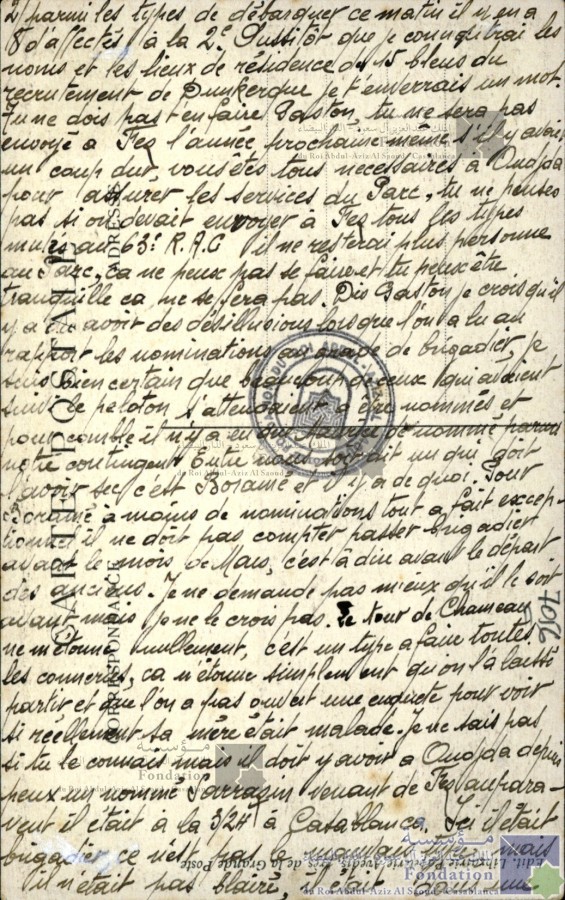 2) parmi les types de débarquer ce matin il y en a
18 d'affectés à la 2e. Aussitôt que je connaitrai les
noms et les lieux de résidence des 15 bleus du
recrutement de Dunkerque je t'enverrais un mot.
Tu ne dois pas t'en faire Gaston, tu ne sera pas
envoyé à Fez l'année prochaine même s'il y avait
un coup dur, vous êtes tous necessaires à Oudjda
pour assurer les services du Parc, tu ne penses
pas si on devait envoyer à Fez tous les types
mutés au 63e R.A.C il ne resterai plus personne
au Parc, ca ne peux pas se faire et tu peux être
tranquille ca ne se fera pas. Dis Gaston je crois qu'il
y a du avoir des désillusions lorsque l'on a lu au
rapport les nominations au grade de brigadier, je
suis bien certain que beaucoup de ceux qui avaient
suivi le peloton s'attendaient a être nommés et
pour comble il n'y a en de nommé parmi
notre contingent. Entre nous soit dit un qui doit
l'avoir sec c'est Boramé et il y a de quoi. Pour
Boramé à moins de nominations tout a fait excep-
tionnel il ne doit pas compter passer brigadier
avant le mois de Mars, c'est à dire avant le départ
des anciens. Je ne demande pas mieux qu'il le soit
avant mais je ne le crois pas. Le tour de Chameau
ne m'étonne nullement, c'est un type a faire toutes
les conneries, ca m'étonne simplement qu'on l'a laissé
partir et que l'on a pas ouvert une enquete pour voir
si réellement sa mère était malade. Je ne sais pas
si tu le connais mais il doit y avoir a Oudjda depuis
peux un nommé Sarrazin venant de Fez aupara-
vent il était à la 3/24 à Casablanca. Ici il était
brigadier ce n'est pas le mauvais type mais
il n'était pas blairé, il était dans une
CARTE POSTALE
CORRESPONDANCE
ADRESSE
7016
Edit. Librairie Papeterie
de la Grande Poste
مؤسسة
Fondation
du Roi Abdul-Aziz Al Saoud Casablanca